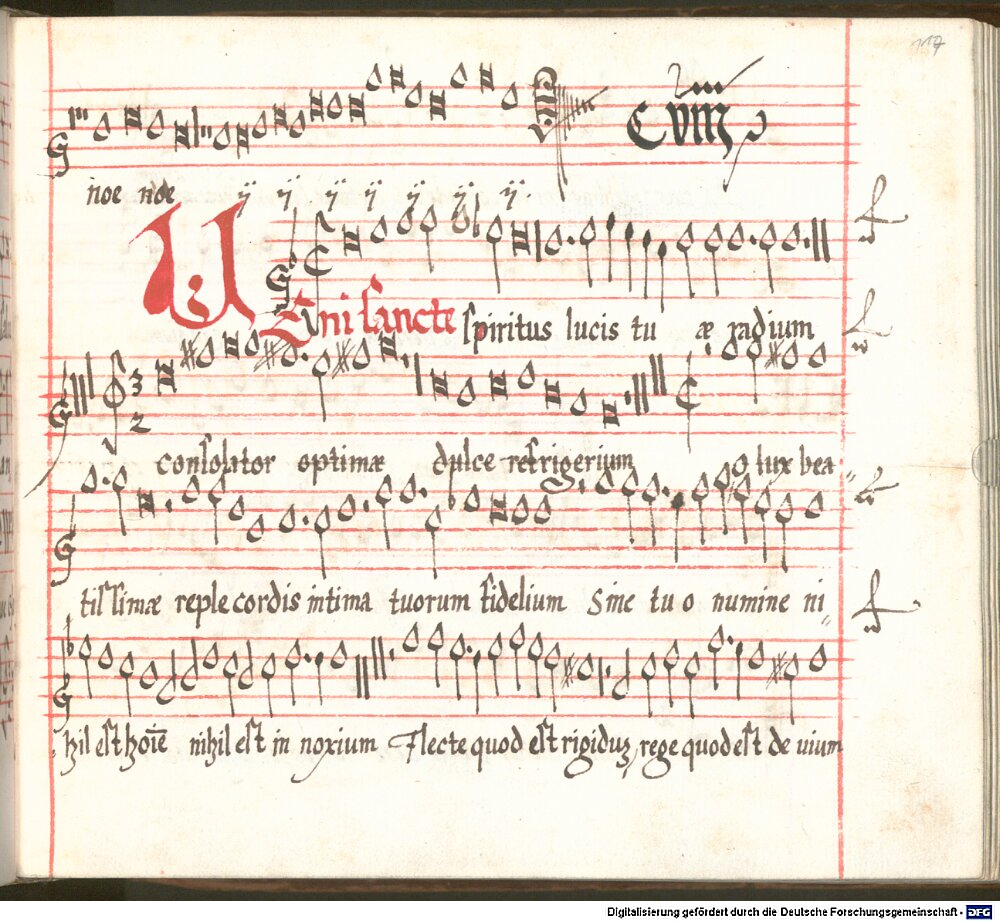 117
CVM
noe noe ij ij ij ij ij ij ij
VEni sancte spiritus lucis tu æ radium
3
2
consolator optimæ dulce refrigerium o lux bea
tissimæ reple cordis intima tuorum fidelium Sine tu o numine ni
hil est hoīe nihil est in noxium Flecte quod est rigidū, rege quod est de uium
Digitalisierung gefördert durch die Deutsche Forschungsgemeinschaft - DFG